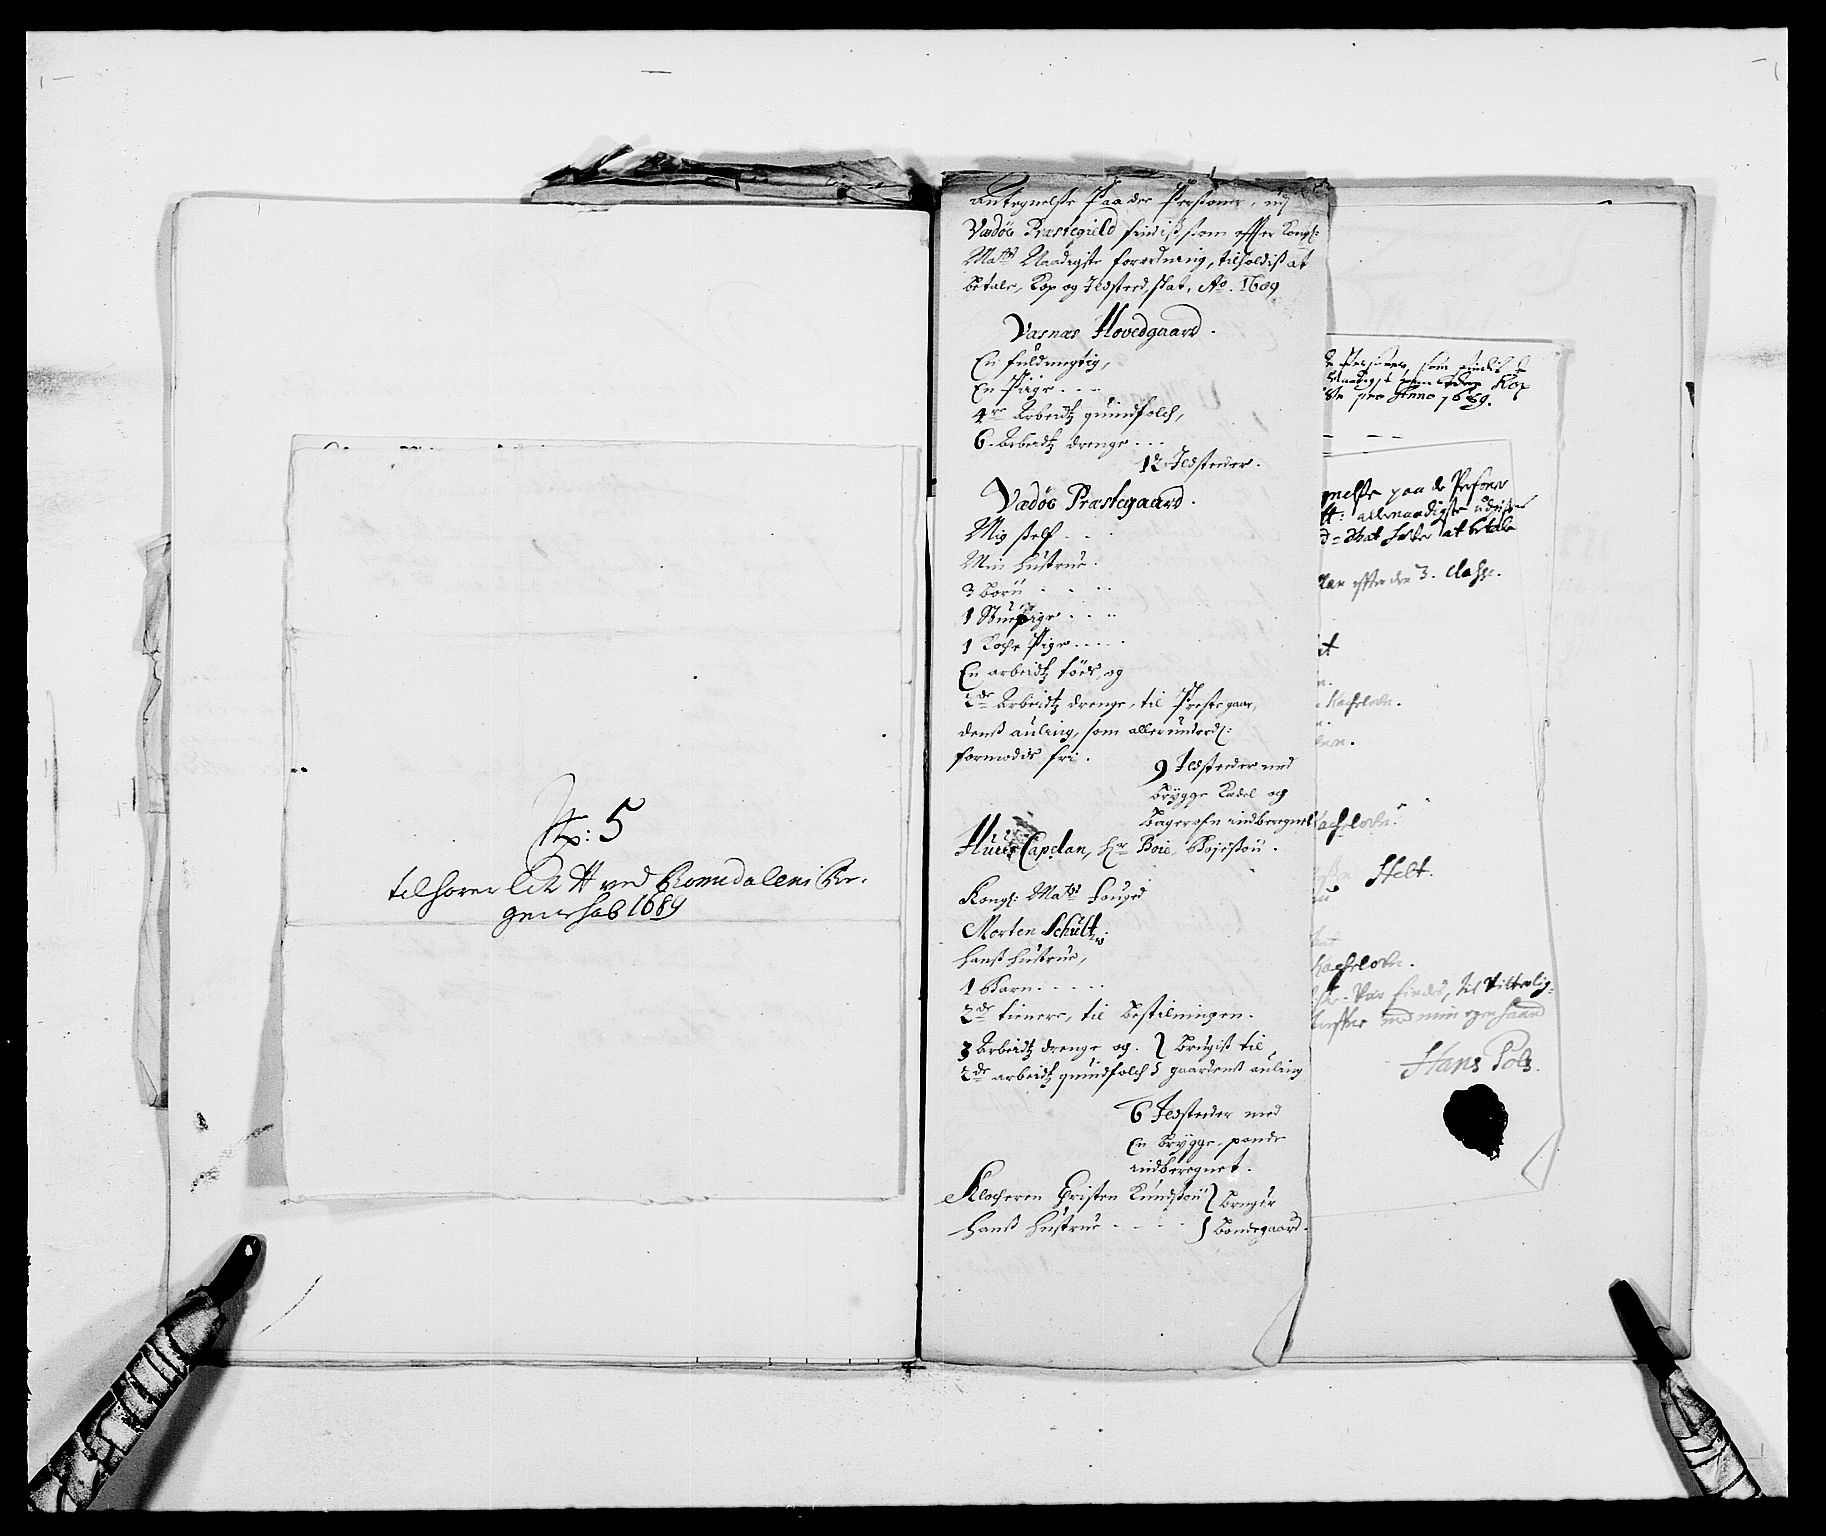 No: 5
tilhører Lit A ved Romsdalens Re-
genschab 1689
Antegnelse Paa der Personer, udj
Vædøe Præstegield findiß som effter Kongl:
Maÿtß Naadigste forordning, tilholdiß at
betale, Kop og Ildsted skat, Ao. 1689
Vasnæs Hovedgaard.
En fuldmegtig,
En Pige . . .
4re Arbeidtz quindfolch,
6. Arbeidtz drenge . . .
12 Ildsteder.
Vædøe Præstegaard.
Mig self . . .
Min hustrue.
3 Børn . . . .
1 Stuepige . . .
1 Koche Pige . . . .
En arbeidtz tøes, og
2de Arbeidtz drenge, til Prestegaar,
denß auling, som allerunderd:
formodis fri.
9 Ildsteder med
Brygge Kædel og
Bagerofn indberegnet
Huus Capelan, hr Boie Bojesøn.
Kongl: Maytß Fouged
Morten Schultz
hanß hustrue,
1 Barn . . . .
2de tienere, til bestilningen.
3 Arbeidtz drenge og } brugiß til
2de arbeidtz quindfolch } gaardenß auling
6 Ildsteder med
En brygge pande
indberegnet.
Klocheren Cristen Knudsøn } bruger
hanß hustrue . . . . } bondegaard.
Personer, som findis
Kop
pro Anno 1689.
paa de Personer
allernaadigste
Skat at betale
efter den 3. Classe.
Kachelovn.
Kachelovn.
Helt.
Kachelovn.
findes, til Vitterlig:
med min egen haand
Hans Pols.